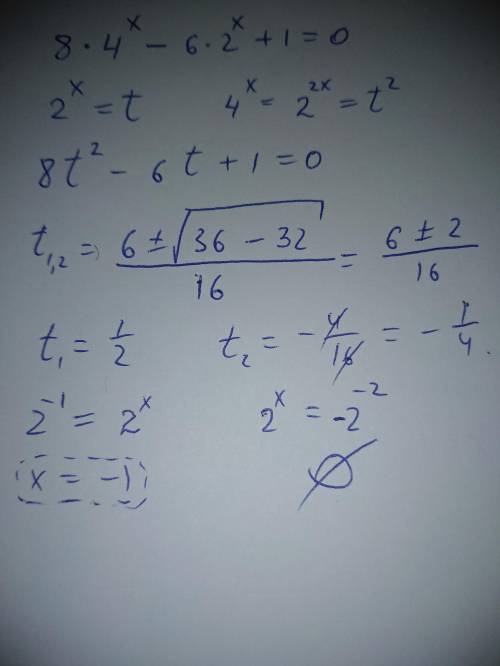 8 · 4^x − 6 · 2^x + 1 = 0
2^x = t 4^x = 2^2x = t^2
8t^2 − 6t + 1 = 0
t1,2 = (6 ± √(36 − 32))/16 = (6 ± 2)/16
t1 = 1/2 t2 = −4/16 = −1/4.
2^−1 = 2^x 2^x = −2^−2
x = −1 ∅